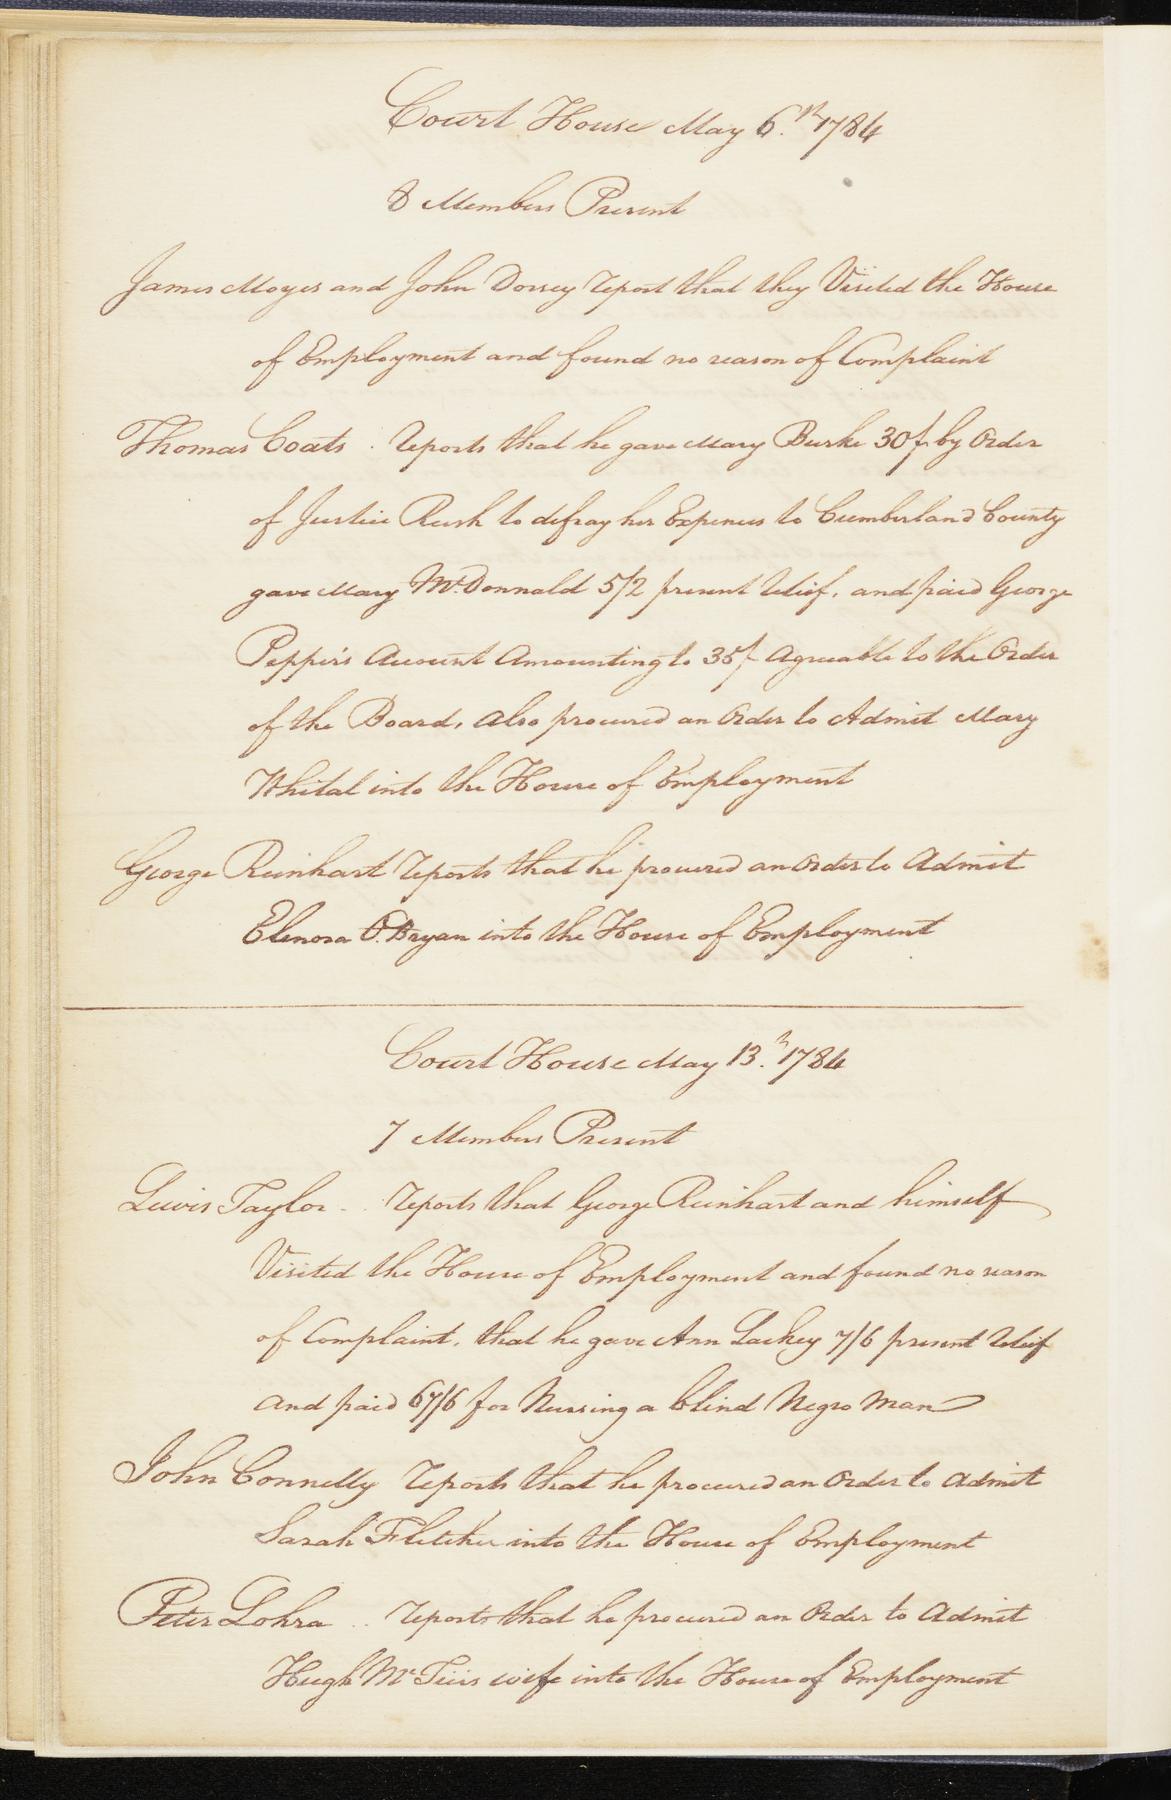 Court House May 6.th 1784
8 Members Present
James Moyes and John Dorsey report that they Visited the House
of Employment and found no reason of Complaint
Thomas Coats . reports that he gave Mary Burke 30/ by Order
of Justice Rush to defray her Expences to Cumberland County
gave Mary Mc.Donnald 5/2 present relief, and paid George
Pepper's Account Amounting to 35/ Agreeable to the Order
of the Board, also procured an Order to Admit Mary
Whital into the House of Employment
George Reinhart reports that he procured an Order to Admit
Elenora O.Bryan into the House of Employment
Court House May 13.th 1784
7 Members Present
Lewis Taylor . . reports that George Reinhart and himself
Visited the House of Employment and found no reason
of Complaint, that he gave Ann Lackey 7/6 present relief
and paid 67/6 for Nursing a blind Negro Man
John Connelly reports that he procured an Order to Admit
Sarah Fletcher into the House of Employment
Peter Lohra . . reports that he procured an Order to Admit
Hugh Mc wife into the House of Employment